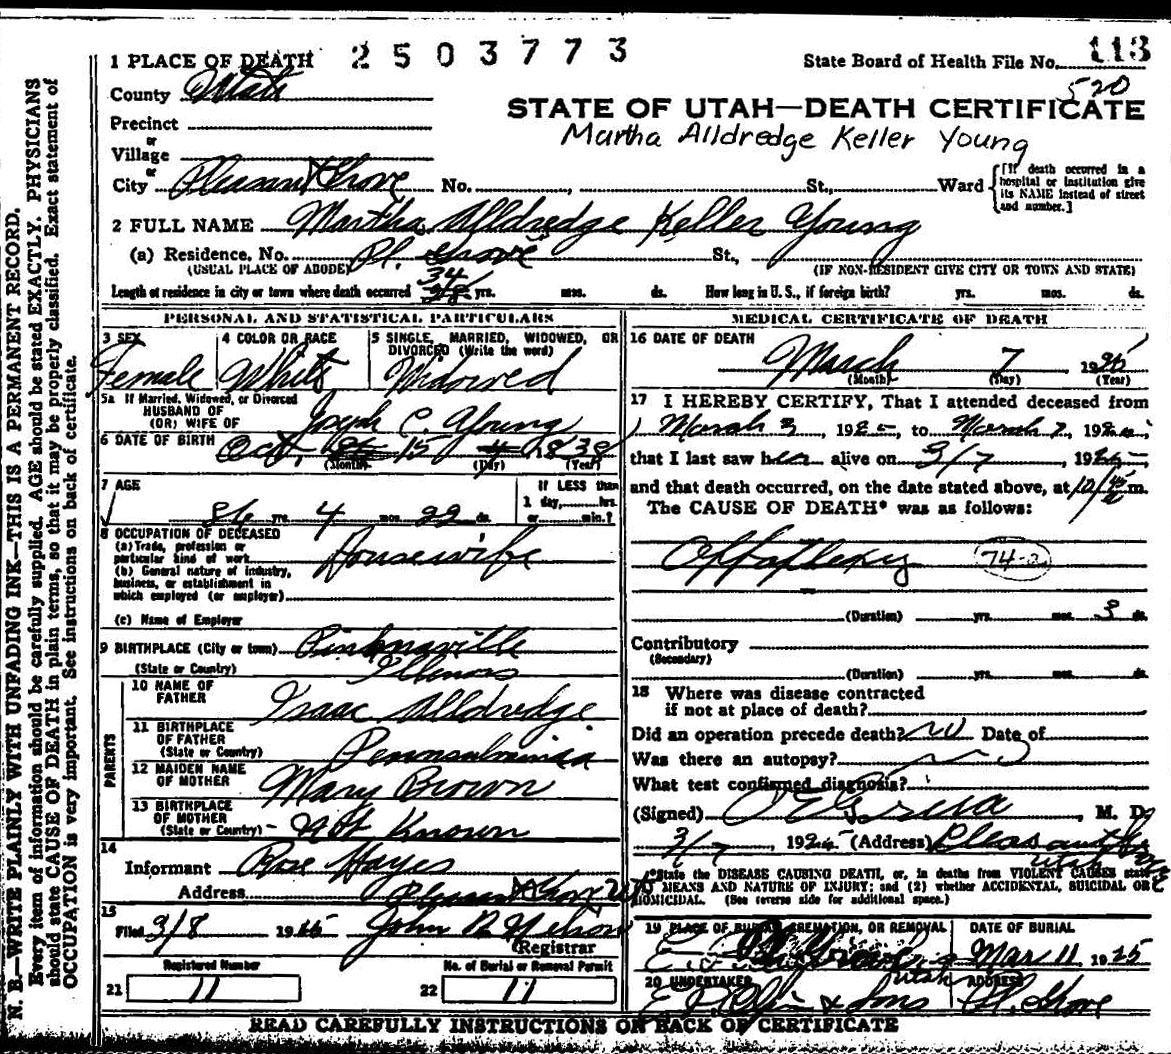 1 PLACE OF DEATH 2503773 State Board of Health File No. 113
County Utah 520
STATE OF UTAH—DEATH CERTIFICATE
Precinct
Martha Alldredge Keller Young
or
Village
or
City Pleasant Grove No. , St., Ward [If death occurred in a hospital or institution give its NAME instead of street and number.]
2 FULL NAME Martha Alldredge Keller Young
(a) Residence. No. Pl. Grove St.,
(USUAL PLACE OF ABODE) (IF NON-RESIDENT GIVE CITY OR TOWN AND STATE)
34
Length of residence in city or town where death occurred yrs. mos. ds. How long in U. S., if foreign birth? yrs. mos. ds.
PERSONAL AND STATISTICAL PARTICULARS
3 SEX 4 COLOR OR RACE 5 SINGLE, MARRIED, WIDOWED, OR
DIVORCED (Write the word)
Female White Widowed
5a If Married, Widowed, or Divorced
HUSBAND OF
(OR) WIFE OF Joseph C. Young
6 DATE OF BIRTH Oct. 15 1838
(Month) (Day) (Year)
7 AGE If LESS than
1 day, hrs.
86 yrs. 4 mos. 22 ds. or min.?
8 OCCUPATION OF DECEASED
(a) Trade, profession or
particular kind of work Housewife
(b) General nature of industry,
business, or establishment in
which employed (or employer)
(c) Name of Employer
9 BIRTHPLACE (City or town) Pinknaville
(State or Country) Illenois
PARENTS
10 NAME OF
FATHER Isaac Alldredge
11 BIRTHPLACE
OF FATHER
(State or Country) Pennsylvania
12 MAIDEN NAME
OF MOTHER Mary Brown
13 BIRTHPLACE
OF MOTHER
(State or Country) Not Known
14
Informant Rose Hayes
Address Pleasant Grove Ut
15
Filed 3/8 1925 John B Nelson
Registrar
Registered Number No. of Burial or Removal Permit
21 11 22 11
MEDICAL CERTIFICATE OF DEATH
16 DATE OF DEATH
March 7 1925
(Month) (Day) (Year)
17 I HEREBY CERTIFY, That I attended deceased from
March 3, 1925, to March 7, 1925
that I last saw her alive on 3/7, 1925
and that death occurred, on the date stated above, at 10/45 m.
The CAUSE OF DEATH* was as follows:
Apoplexy 74-
(Duration) yrs. mos. 3 ds.
Contributory
(Secondary)
(Duration) yrs. mos. ds.
18 Where was disease contracted
if not at place of death?
Did an operation precede death? no Date of
Was there an autopsy? no
What test confirmed diagnosis?
(Signed) , M. D.
3/7, 1925 (Address) Pleasant Grove
Utah
*State the DISEASE CAUSING DEATH, or, in deaths from VIOLENT CAUSES state
MEANS AND NATURE OF INJURY; and (2) whether ACCIDENTAL, SUICIDAL OR
HOMICIDAL. (See reverse side for additional space.)
19 PLACE OF BURIAL, CREMATION, OR REMOVAL DATE OF BURIAL
Pl. Grove Mar 11. 1925
Utah
20 UNDERTAKER ADDRESS
& Sons Pl. Grove
READ CAREFULLY INSTRUCTIONS ON BACK OF CERTIFICATE
N. B.—WRITE PLAINLY WITH UNFADING INK—THIS IS A PERMANENT RECORD.
Every item of information should be carefully supplied. AGE should be stated EXACTLY. PHYSICIANS
should state CAUSE OF DEATH in plain terms, so that it may be properly classified. Exact statement of
OCCUPATION is very important. See instructions on back of certificate.